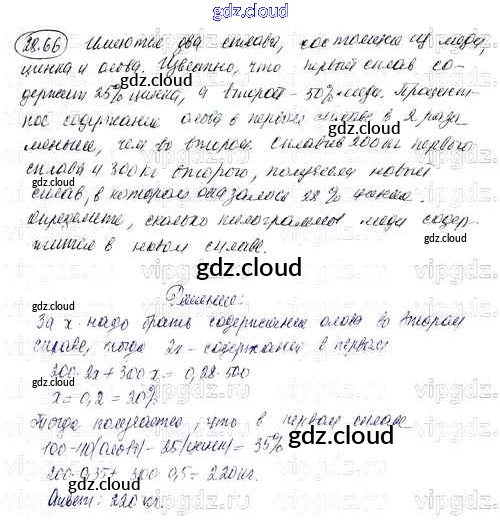 gdz.cloud
28.66 Имеются два сплава, состоящие из меди,
цинка и олова. Известно, что первый сплав со-
держит 25% цинка, а второй - 50% меди. Процент-
ное содержание олова в первом сплаве в 2 раза
меньше, чем во втором. Сплавив 200 кг первого
сплава и 300 кг второго, получили новый
сплав, в котором оказалось 28% олова.
Определите, сколько килограммов меди содер-
жится в новом сплаве.
gdz.cloud
Решение:
За x надо брать содержание олова во втором
сплаве, тогда 2x - содержание в первом
200·2x + 300x = 0,28·500
x = 0,2 = 20%
Тогда получается, что в первом сплаве
100-40(олово)-25(цинк) = 35%
200·0,35 + 300·0,5 = 220 кг.
Ответ: 220 кг.
gdz.cloud